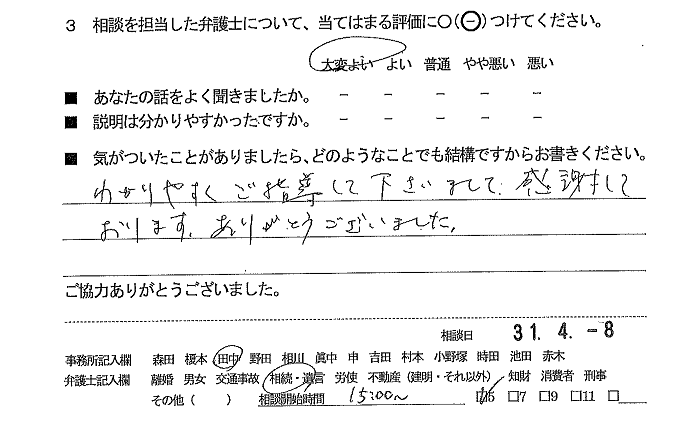 3 相談を担当した弁護士について、当てはまる評価に○(⊖)つけてください。
大変よい よい 普通 やや悪い 悪い
■ あなたの話をよく聞きましたか。 － － － － －
■ 説明は分かりやすかったですか。 － － － － －
■ 気がついたことがありましたら、どのようなことでも結構ですからお書きください。
わかりやすくご指導して下さいまして、感謝して
おります。ありがとうございました。
ご協力ありがとうございました。
相談日 31. 4. -8
事務所記入欄 森田 榎本 田中 野田 相川 眞中 申 吉田 村本 小野塚 時田 池田 赤木
弁護士記入欄 離婚 男女 交通事故 相続・遺言 労使 不動産（建明・それ以外） 知財 消費者 刑事
その他（ ） 相談開始時間 15:00~ □5 □7 □9 □11 □